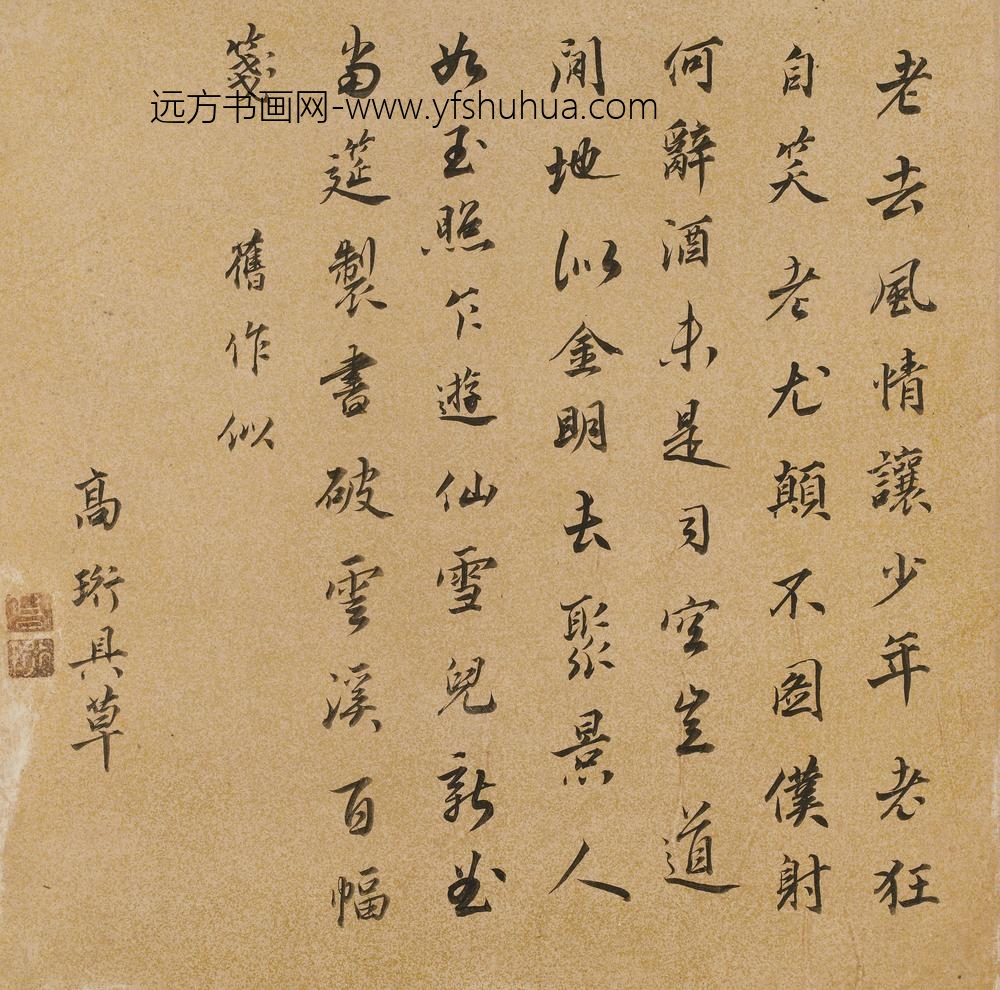 老去風情讓少年老狂
自笑老尤顛不圖僕射
何辭酒未是司空豈道
閒地似金明去聚景人
如玉照乍遊仙雪兒新出
當筵製書破雲溪百幅
箋 舊作似
高珩具草
远方书画网-www.yfshuhua.com